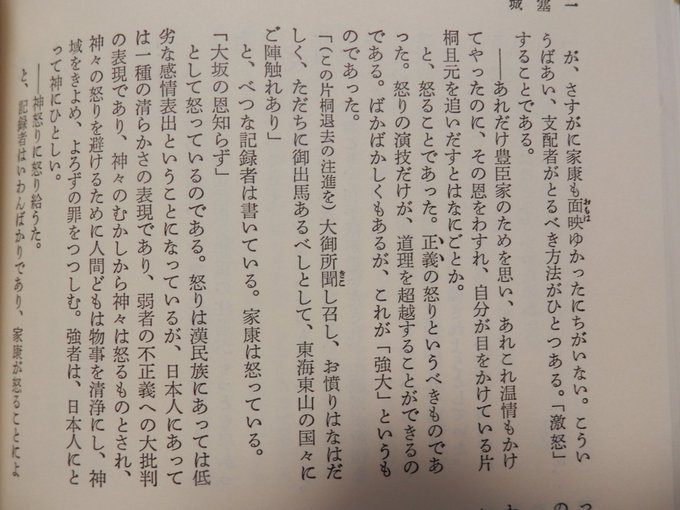 一　塞　城
が、さすがに家康も面映ゆかったにちがいない。こうい
うばあい、支配者がとるべき方法がひとつある。「激怒」
することである。
――あれだけ豊臣家のためを思い、あれこれ温情もかけ
てやったのに、その恩をわすれ、自分が目をかけている片
桐且元を追いだすとはなにごとか。
と、怒ることであった。正義の怒りというべきものであ
った。怒りの演技だけが、道理を超越することができるの
である。ばかばかしくもあるが、これが「強大」というも
のであった。
「（この片桐退去の注進を）大御所聞し召し、お憤りはなはだ
しく、ただちに御出馬あるべしとして、東海東山の国々に
ご陣触れあり」
と、べつな記録者は書いている。家康は怒っている。
「大坂の恩知らず」
として怒っているのである。怒りは漢民族にあっては低
劣な感情表出ということになっているが、日本人にあって
は一種の清らかさの表現であり、弱者の不正義への大批判
の表現であり、神々のむかしから神々は怒るものとされ、
神々の怒りを避けるために人間どもは物事を清浄にし、神
域をきよめ、よろずの罪をつつしむ。強者は、日本人にと
って神にひとしい。
――神怒りに怒り給うた。
と、記録者はいわんばかりであり、家康が怒ることによ